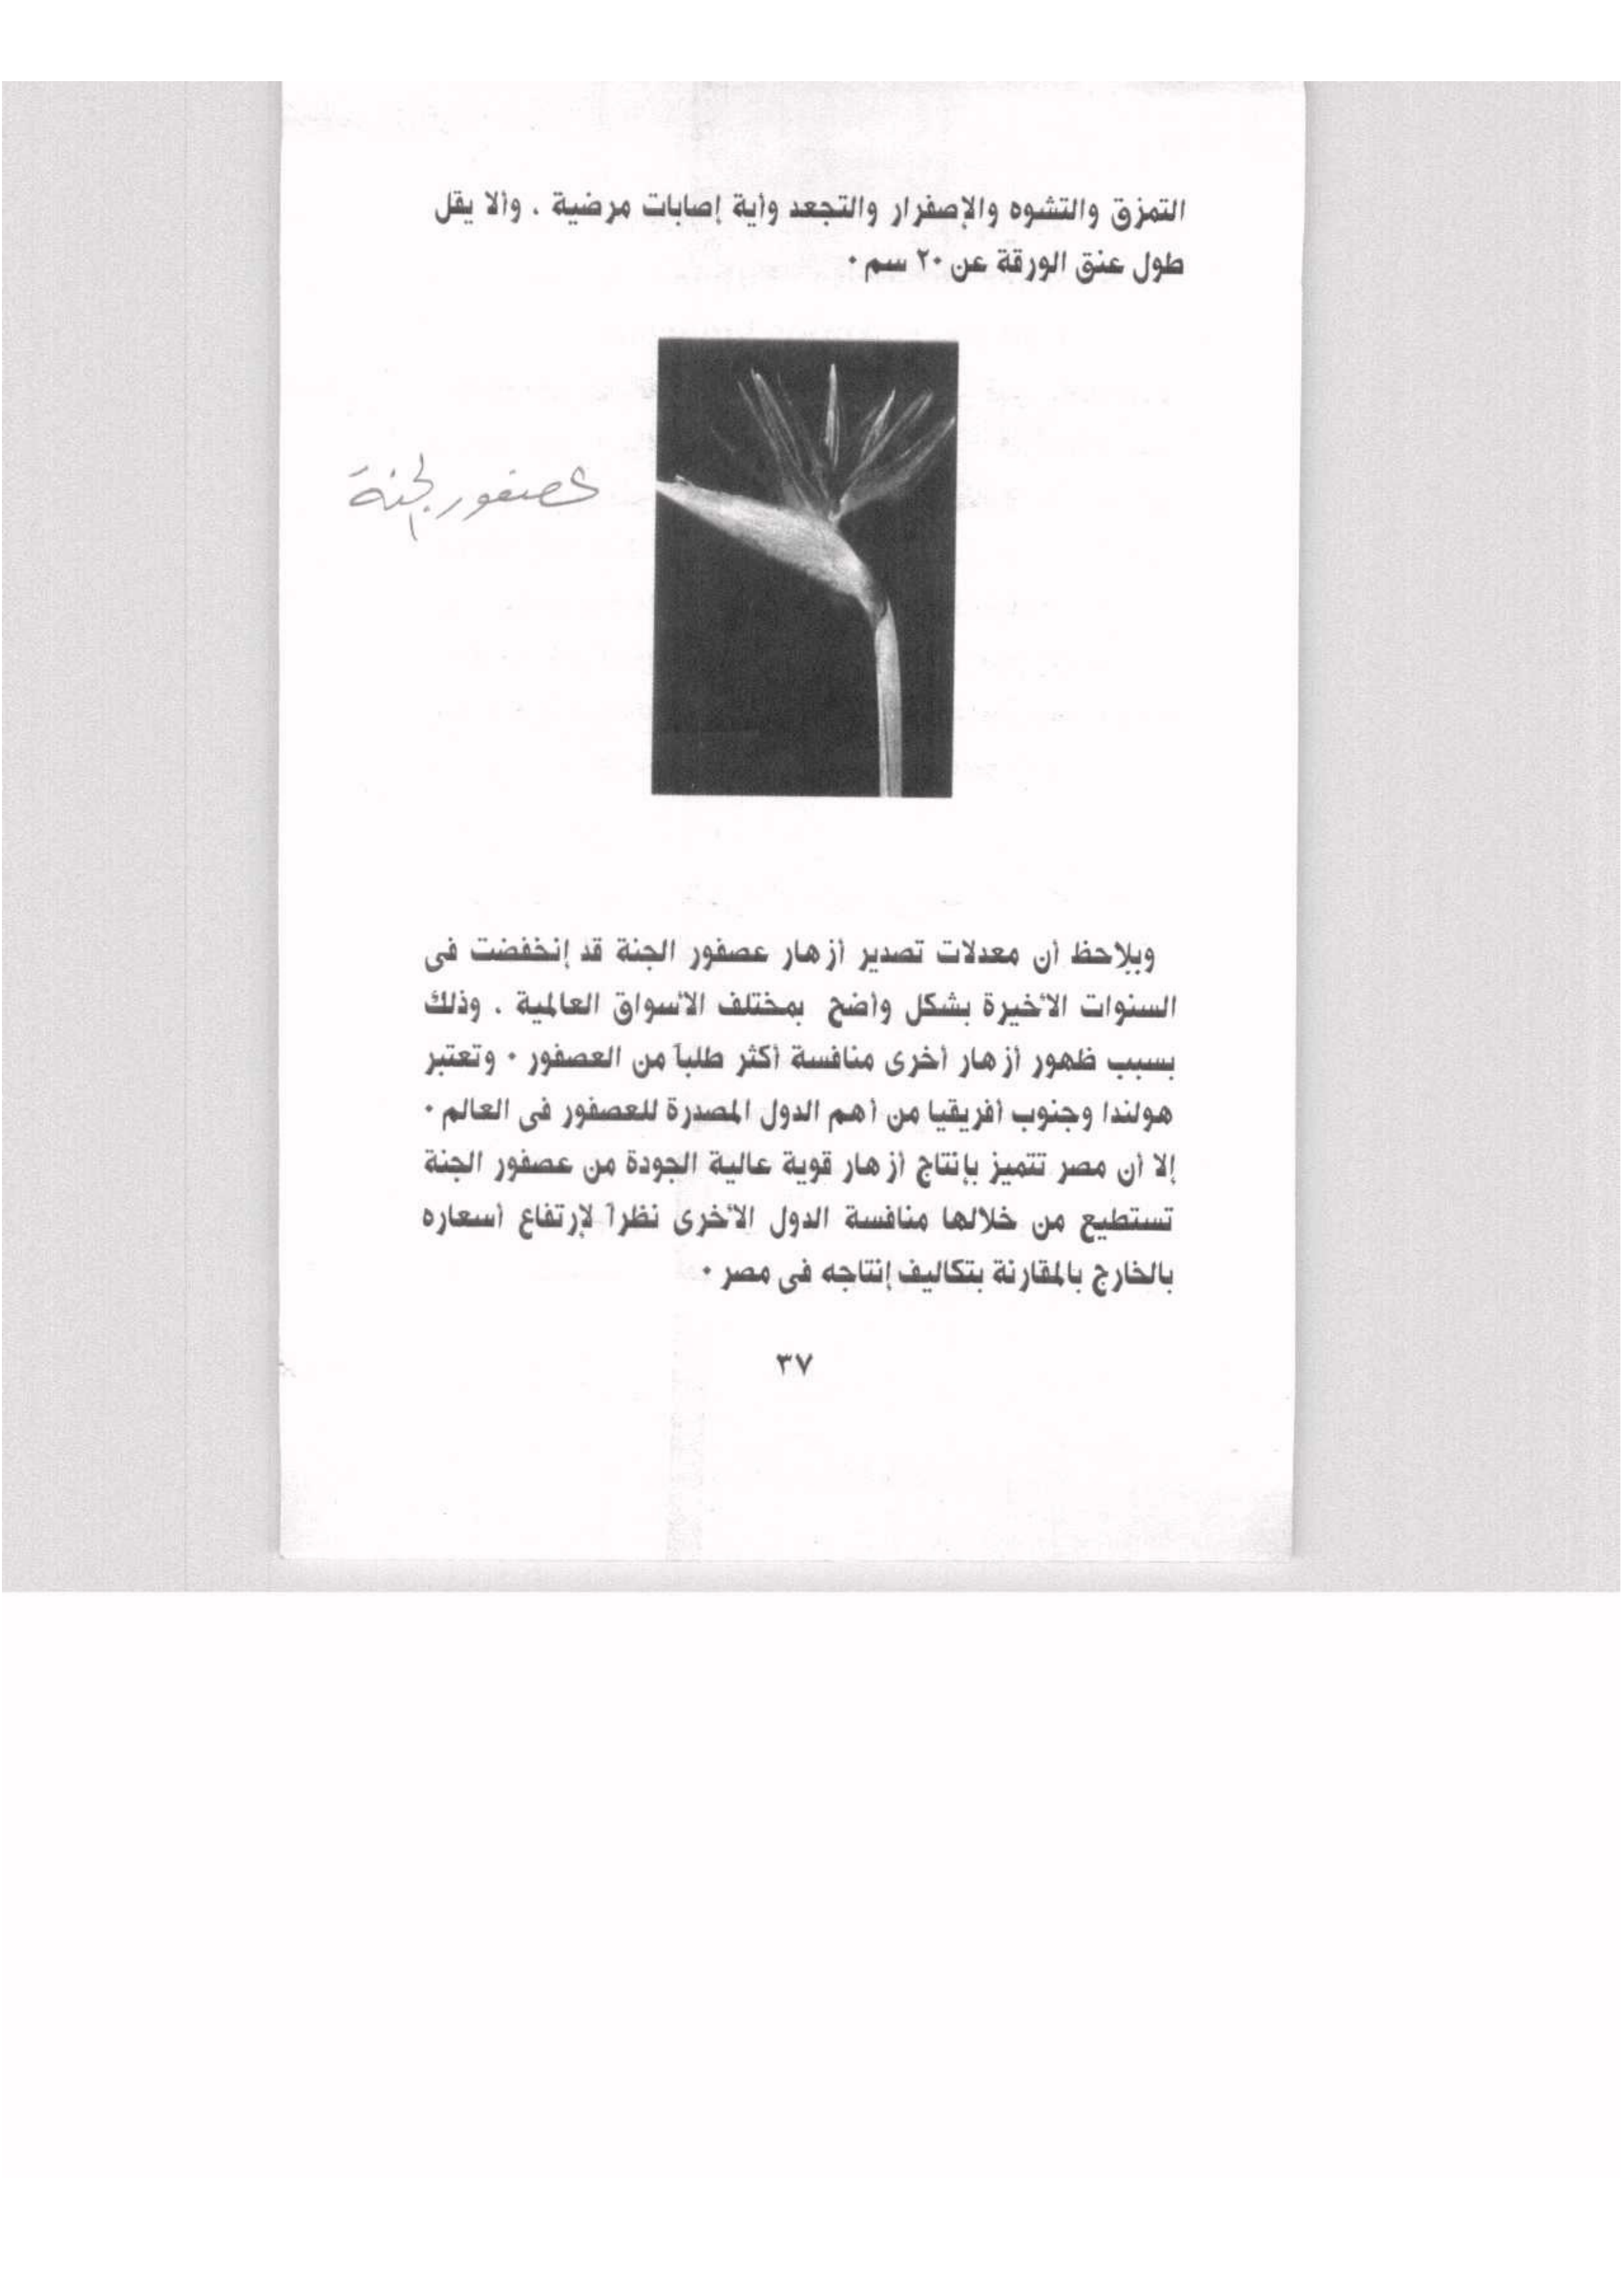 التمزق والتشوه والإصفرار والتجعد وأية إصابات مرضية . وألا يقل
طول عنق الورقة عن ٢٠ سم ٠
عصفور الجنة
ويلاحظ أن معدلات تصدير أزهار عصفور الجنة قد إنخفضت فى
السنوات الأخيرة بشكل واضح بمختلف الأسواق العالمية . وذلك
بسبب ظهور أزهار أخرى منافسة أكثر طلباً من العصفور ٠ وتعتبر
هولندا وجنوب أفريقيا من أهم الدول المصدرة للعصفور فى العالم ٠
إلا أن مصر تتميز بإنتاج أزهار قوية عالية الجودة من عصفور الجنة
تستطيع من خلالها منافسة الدول الأخرى نظراً لإرتفاع أسعاره
بالخارج بالمقارنة بتكاليف إنتاجه فى مصر ٠
٣٧